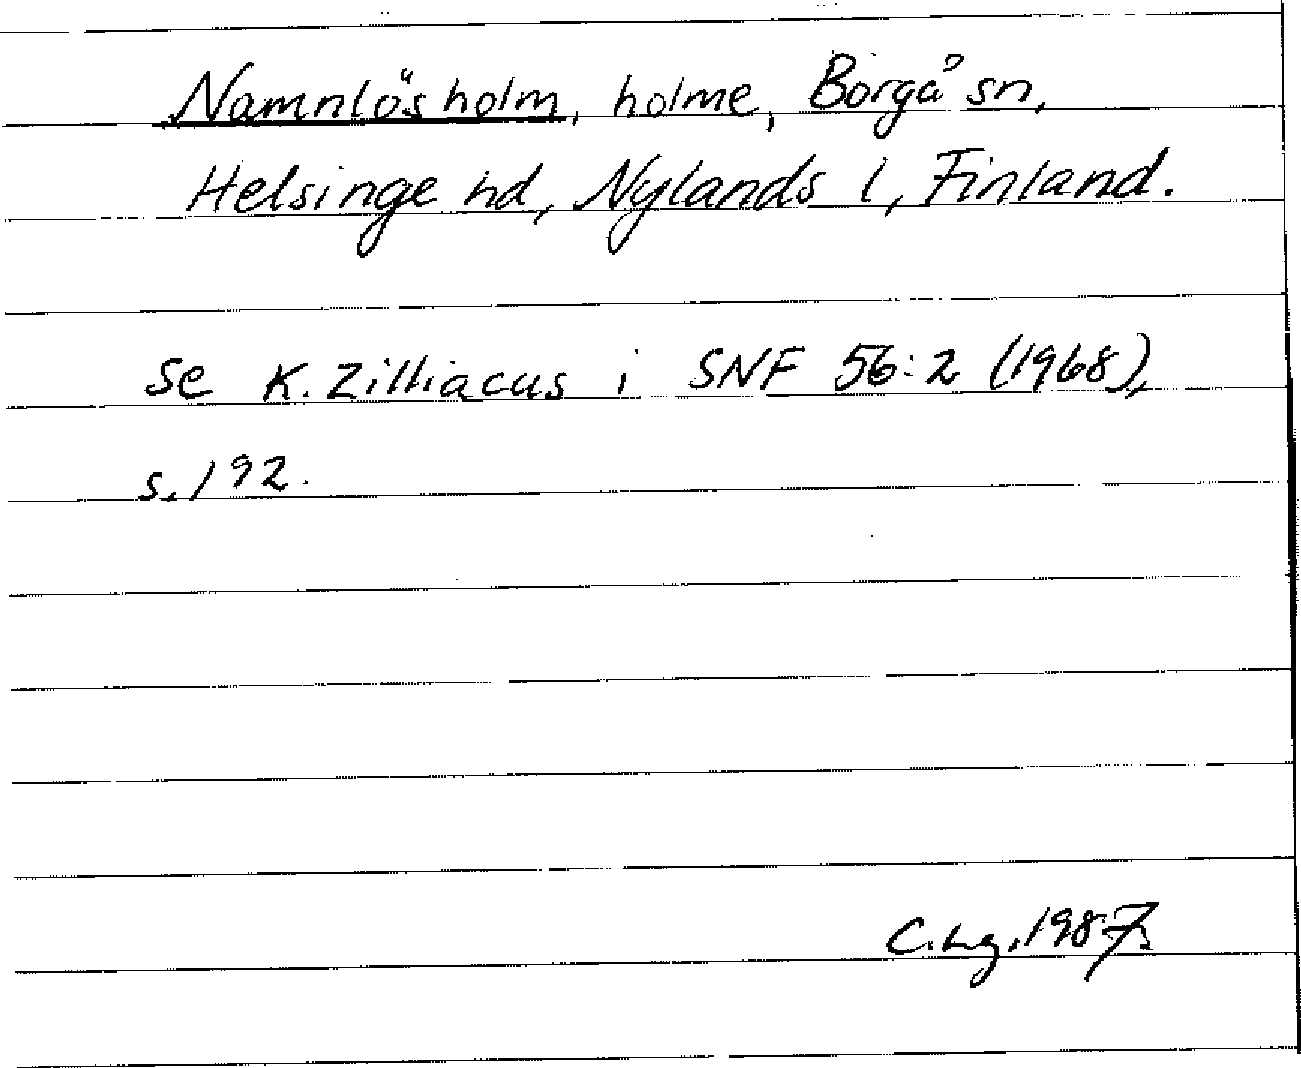 Namnlösholm, holme, Borgå sn,
Helsinge hd, Nylands l, Finland.
se K. Zilliacus i SNF 56:2 (1968),
s. 192.
C. Lg. 1987